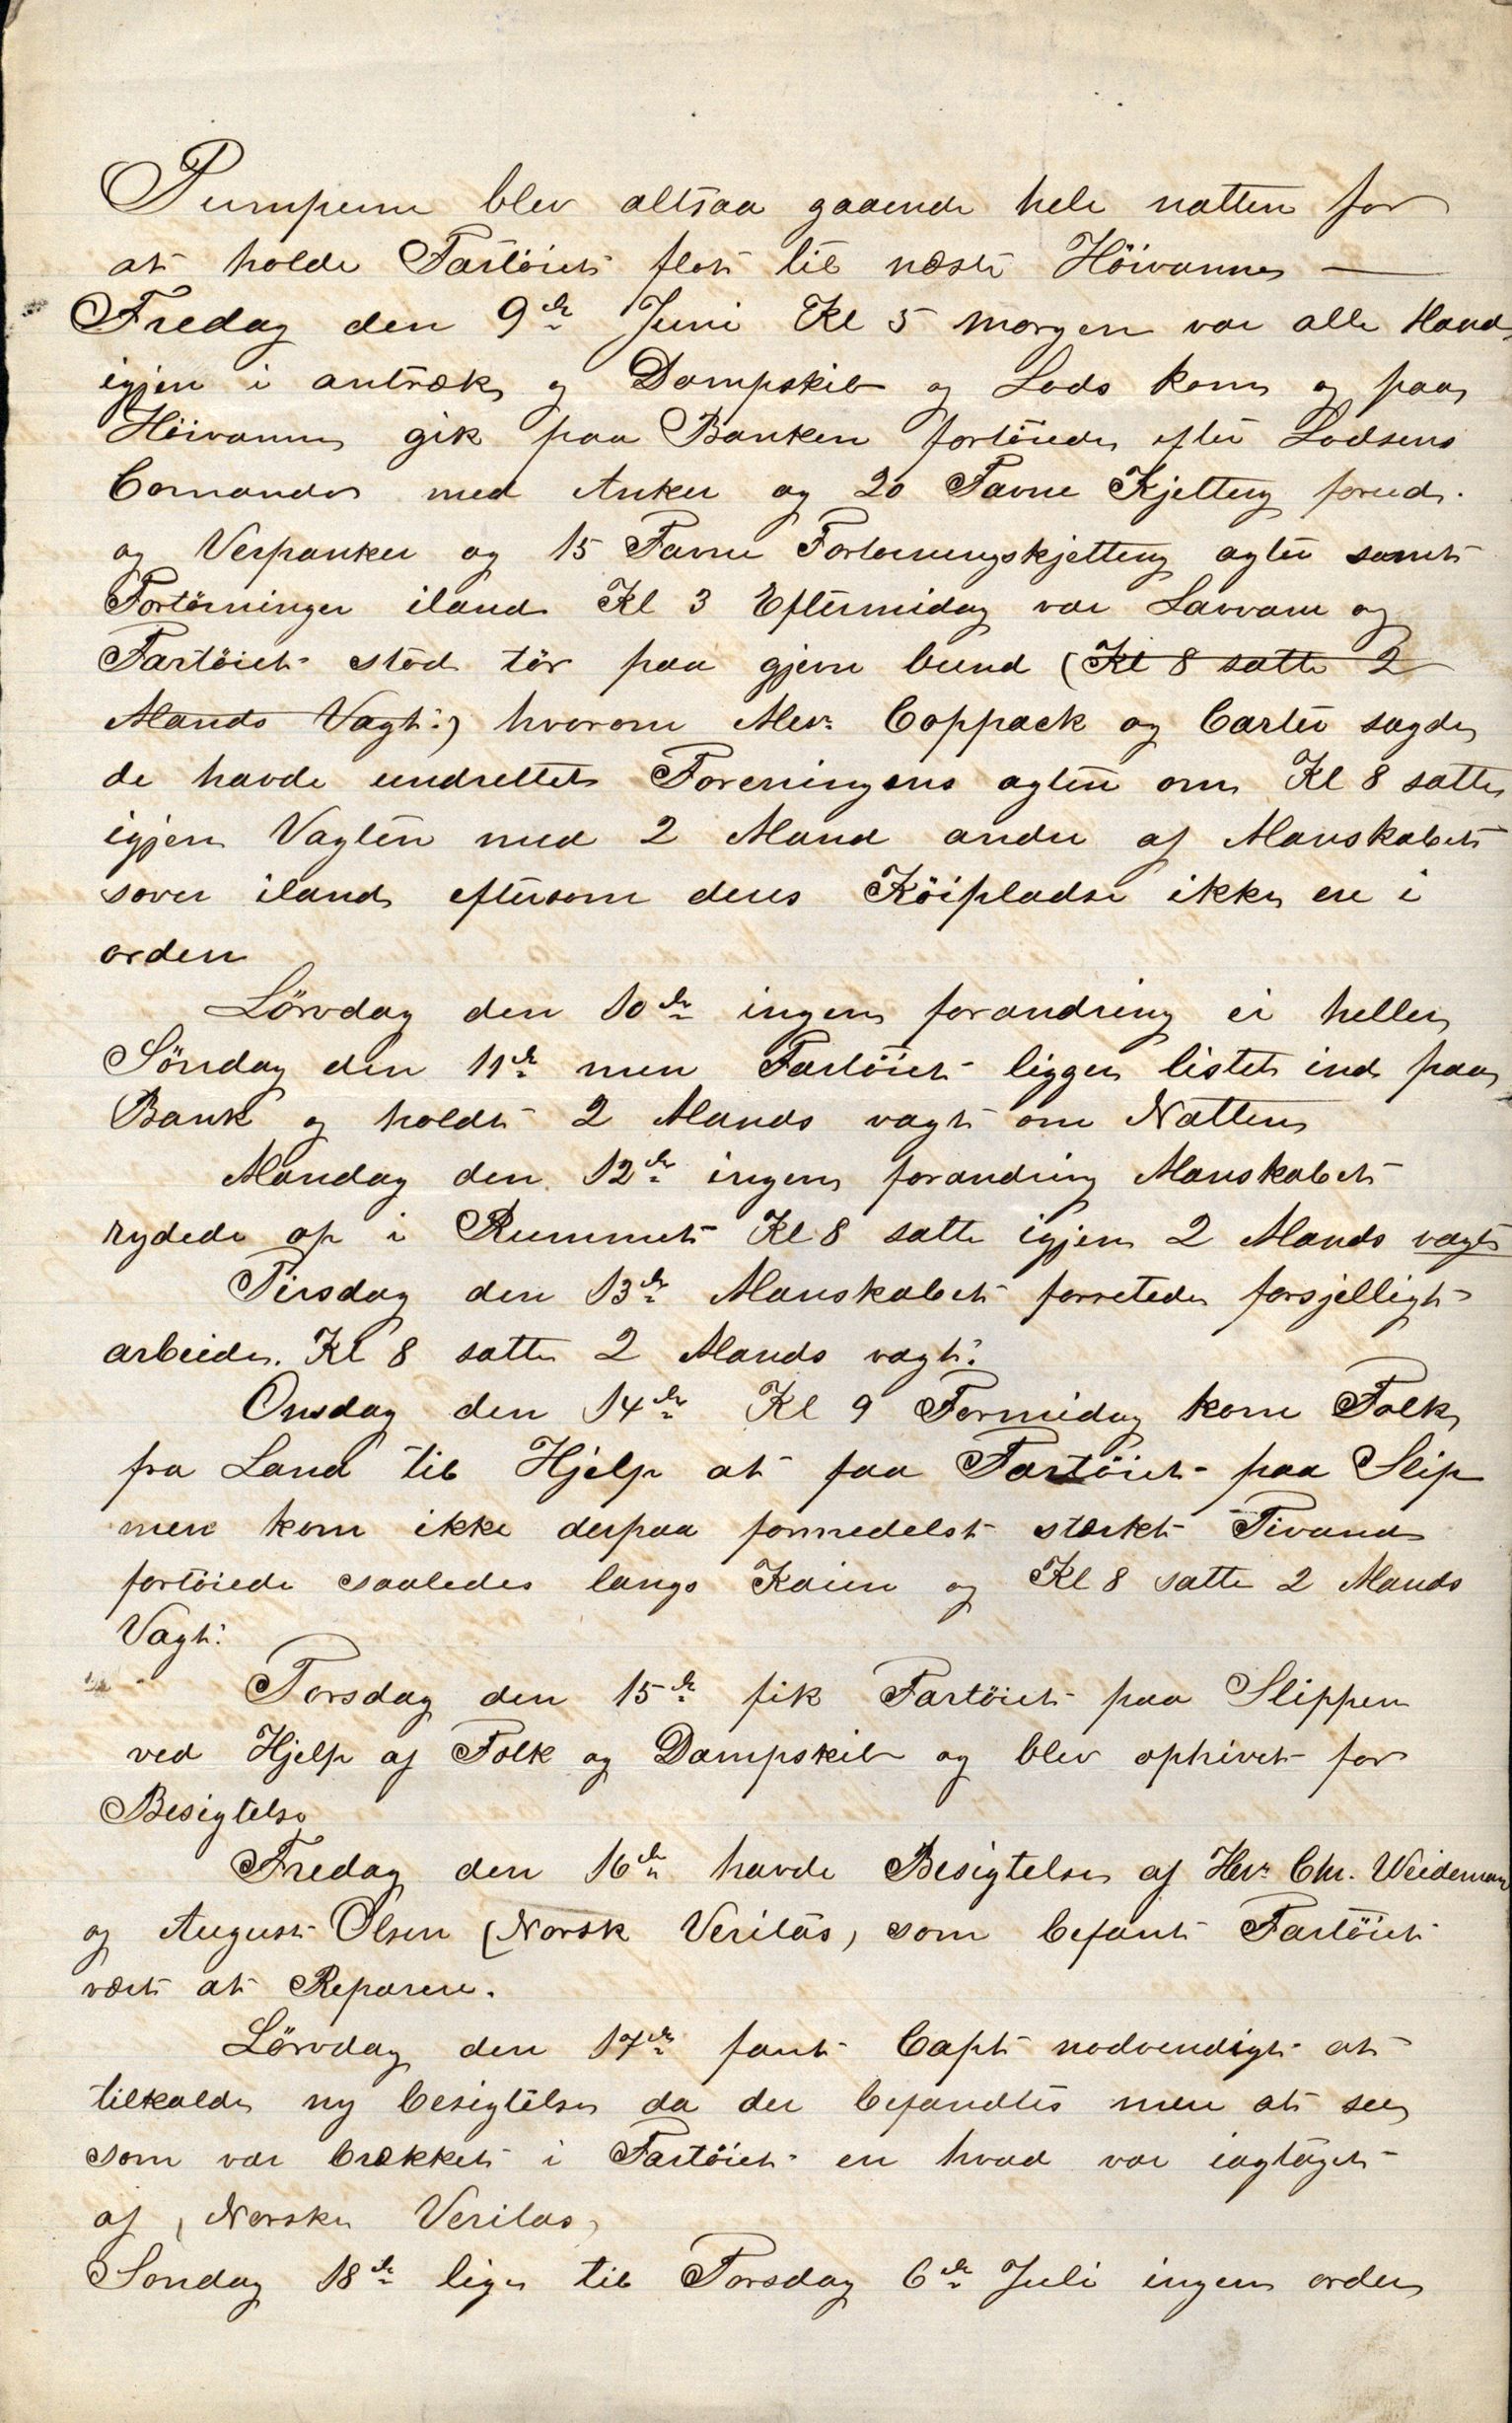 Pumperne blev altsaa gaaende hele natten for
at holde Fartöiet flot til næste Höivanne —
Fredag den 9de Juni Kl 5 morgen var alle Mand
igjen i antræk og Dampskib og Lods kom og paa
Höivanne gik paa Banken fortöiede efter Lodsens
Comando med Anker og 20 Favne Kjetting forud.
og Verpanker og 15 Favne Fortoiningskjetting agter samt
Fortöininger iland Kl 3 Eftermidag var Lavvane og
Fartöiet stod tör paa gjevn bund (Kl 8 satte 2
Mands Vagt.) hvorom Mesr Coppack og Carter sagde
de havde undrettet Foreningens agten om Kl 8 satte
igjen Vagten med 2 Mand andre af Manskabet
sover iland eftersom deres Köipladse ikke ere i
orden
Lörvdag den 10de ingen forandring ei heller
Söndag den 11de men Fartöiet ligger listet ind paa
Bank og holdt 2 Mands vagt om Natten
Mandag den 12de ingen forandring Manskabet
rydede op i Rummet Kl 8 satte igjen 2 Mands vagt
Tirsdag den 13de Manskabet forretede forsjelligt
arbeide. Kl 8 satte 2 Mands vagt.
Onsdag den 14de Kl 9 Formidag kom Folk
fra Land til Hjelp at faa Fartöiet paa Slip
men kom ikke derpaa formedelst stærkt Tivand
fortöiede saaledes langs Kaien og Kl 8 satte 2 Mands
Vagt.
Torsdag den 15de fik Fartöiet paa Slippen
ved Hjelp af Folk og Dampskib og blev ophivet for
Besigtelse
Fredag den 16de havde Besigtelse af Her Chr. Weideman
og August Olsen (Norsk Veritas) som befant Fartöiet
vært at Reparere.
Lörvdag den 17de fant Capt nodvendigt at
tilkalde ny besigtelse da der befandtes mere at see
som var brækket i Fartöiet en hvad var iagtaget
af (Norske Veritas)
Sondag 18de lige til Torsdag 6de Juli ingen orden